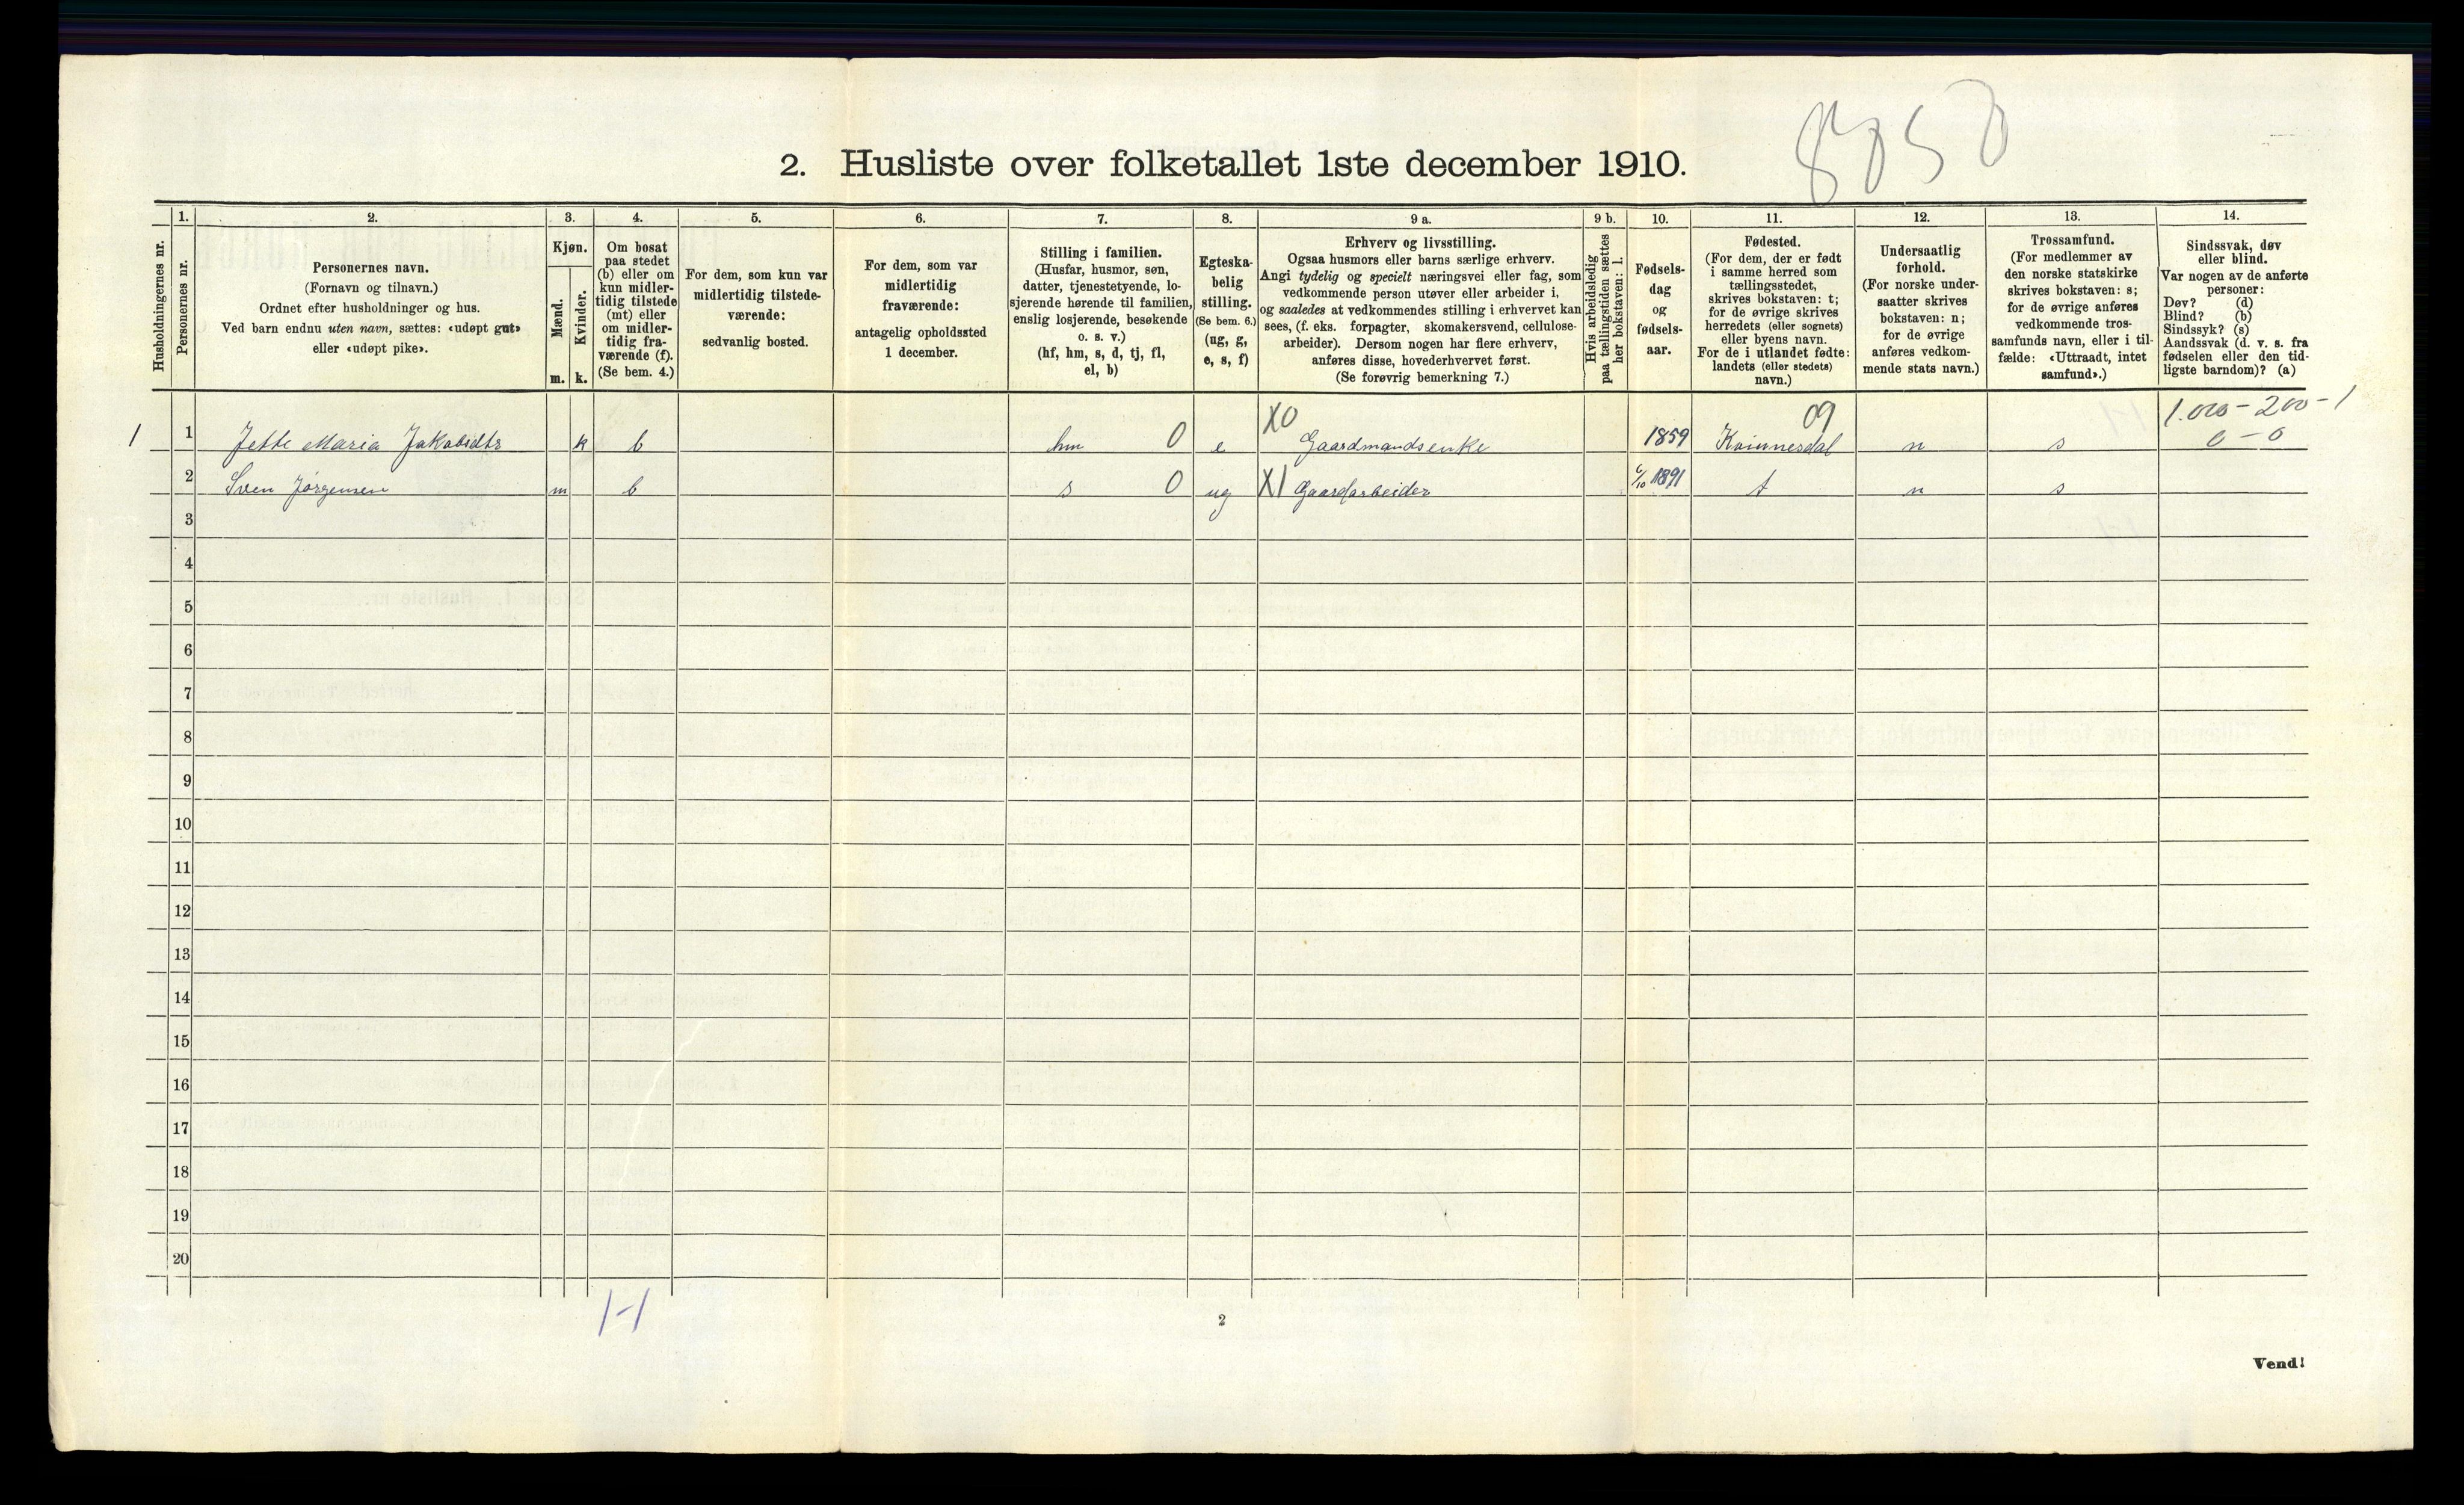 8050
2. Husliste over folketallet 1ste december 1910.
Husholdningernes nr.
1.
Personernes nr.
2.
Personernes navn.
(Fornavn og tilnavn.)
Ordnet efter husholdninger og hus.
Ved barn endnu uten navn, sættes: «udøpt gut»
eller «udøpt pike».
3.
Kjøn.
Mænd.
Kvinder.
m. k.
4.
Om bosat
paa stedet
(b) eller om
kun midler-
tidig tilstede
(mt) eller
om midler-
tidig fra-
værende (f).
(Se bem. 4.)
5.
For dem, som kun var
midlertidig tilstede-
værende:
sedvanlig bosted.
6.
For dem, som var
midlertidig
fraværende:
antagelig opholdssted
1 december.
7.
Stilling i familien.
(Husfar, husmor, søn,
datter, tjenestetyende, lo-
sjerende hørende til familien,
enslig losjerende, besøkende
o. s. v.)
(hf, hm, s, d, tj, fl,
el, b)
8.
Egteska-
belig
stilling.
(Se bem. 6.)
(ug, g,
e, s, f)
9 a.
Erhverv og livsstilling.
Ogsaa husmors eller barns særlige erhverv.
Angi tydelig og specielt næringsvei eller fag, som
vedkommende person utøver eller arbeider i,
og saaledes at vedkommendes stilling i erhvervet kan
sees, (f. eks. forpagter, skomakersvend, cellulose-
arbeider). Dersom nogen har flere erhverv,
anføres disse, hovederhvervet først.
(Se forøvrig bemerkning 7.)
9 b.
Hvis arbeidsledig
paa tællingstiden sættes
her bokstaven: l.
10.
Fødsels-
dag
og
fødsels-
aar.
11.
Fødested.
(For dem, der er født
i samme herred som
tællingsstedet,
skrives bokstaven: t;
for de øvrige skrives
herredets (eller sognets)
eller byens navn.
For de i utlandet fødte:
landets (eller stedets)
navn.)
12.
Undersaatlig
forhold.
(For norske under-
saatter skrives
bokstaven: n;
for de øvrige
anføres vedkom-
mende stats navn.)
13.
Trossamfund.
(For medlemmer av
den norske statskirke
skrives bokstaven: s;
for de øvrige anføres
vedkommende tros-
samfunds navn, eller i til-
fælde: «Uttraadt, intet
samfund».)
14.
Sindssvak, døv
eller blind.
Var nogen av de anførte
personer:
Døv? (d)
Blind? (b)
Sindssyk? (s)
Aandssvak (d. v. s. fra
fødselen eller den tid-
ligste barndom)? (a)
X0 09 1.000-200-1
1 1 Jette Maria Jakobsdtr k b hm 0 e Gaardmandsenke 1859 Kvinnesdal n s 0-0
2 Sven Jørgensen m b s 0 ug X1 Gaardarbeider 6/10 1891 t n s
3
4
5
6
7
8
9
10
11
12
13
14
15
16
17
18
19
20
1-1
2
Vend!